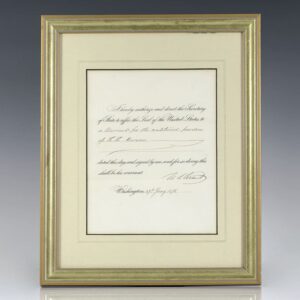 I hereby authorize and direct the Secretary
of State to affix the Seal of the United States to
a Warrant for the conditional pardon
of
dated this day and signed by me and for so doing this
shall be his warrant.
U.S. Grant
Washington,